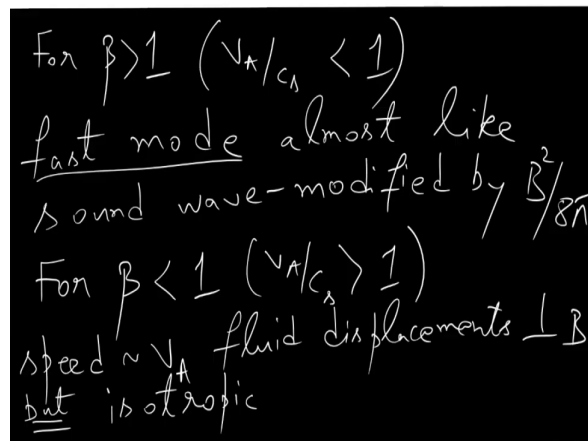 For β>1 (V_A/c_s < 1)
fast mode almost like
sound wave-modified by B²/8π
For β < 1 (V_A/c_s > 1)
speed ~ V_A fluid displacements ⊥ B
but isotropic